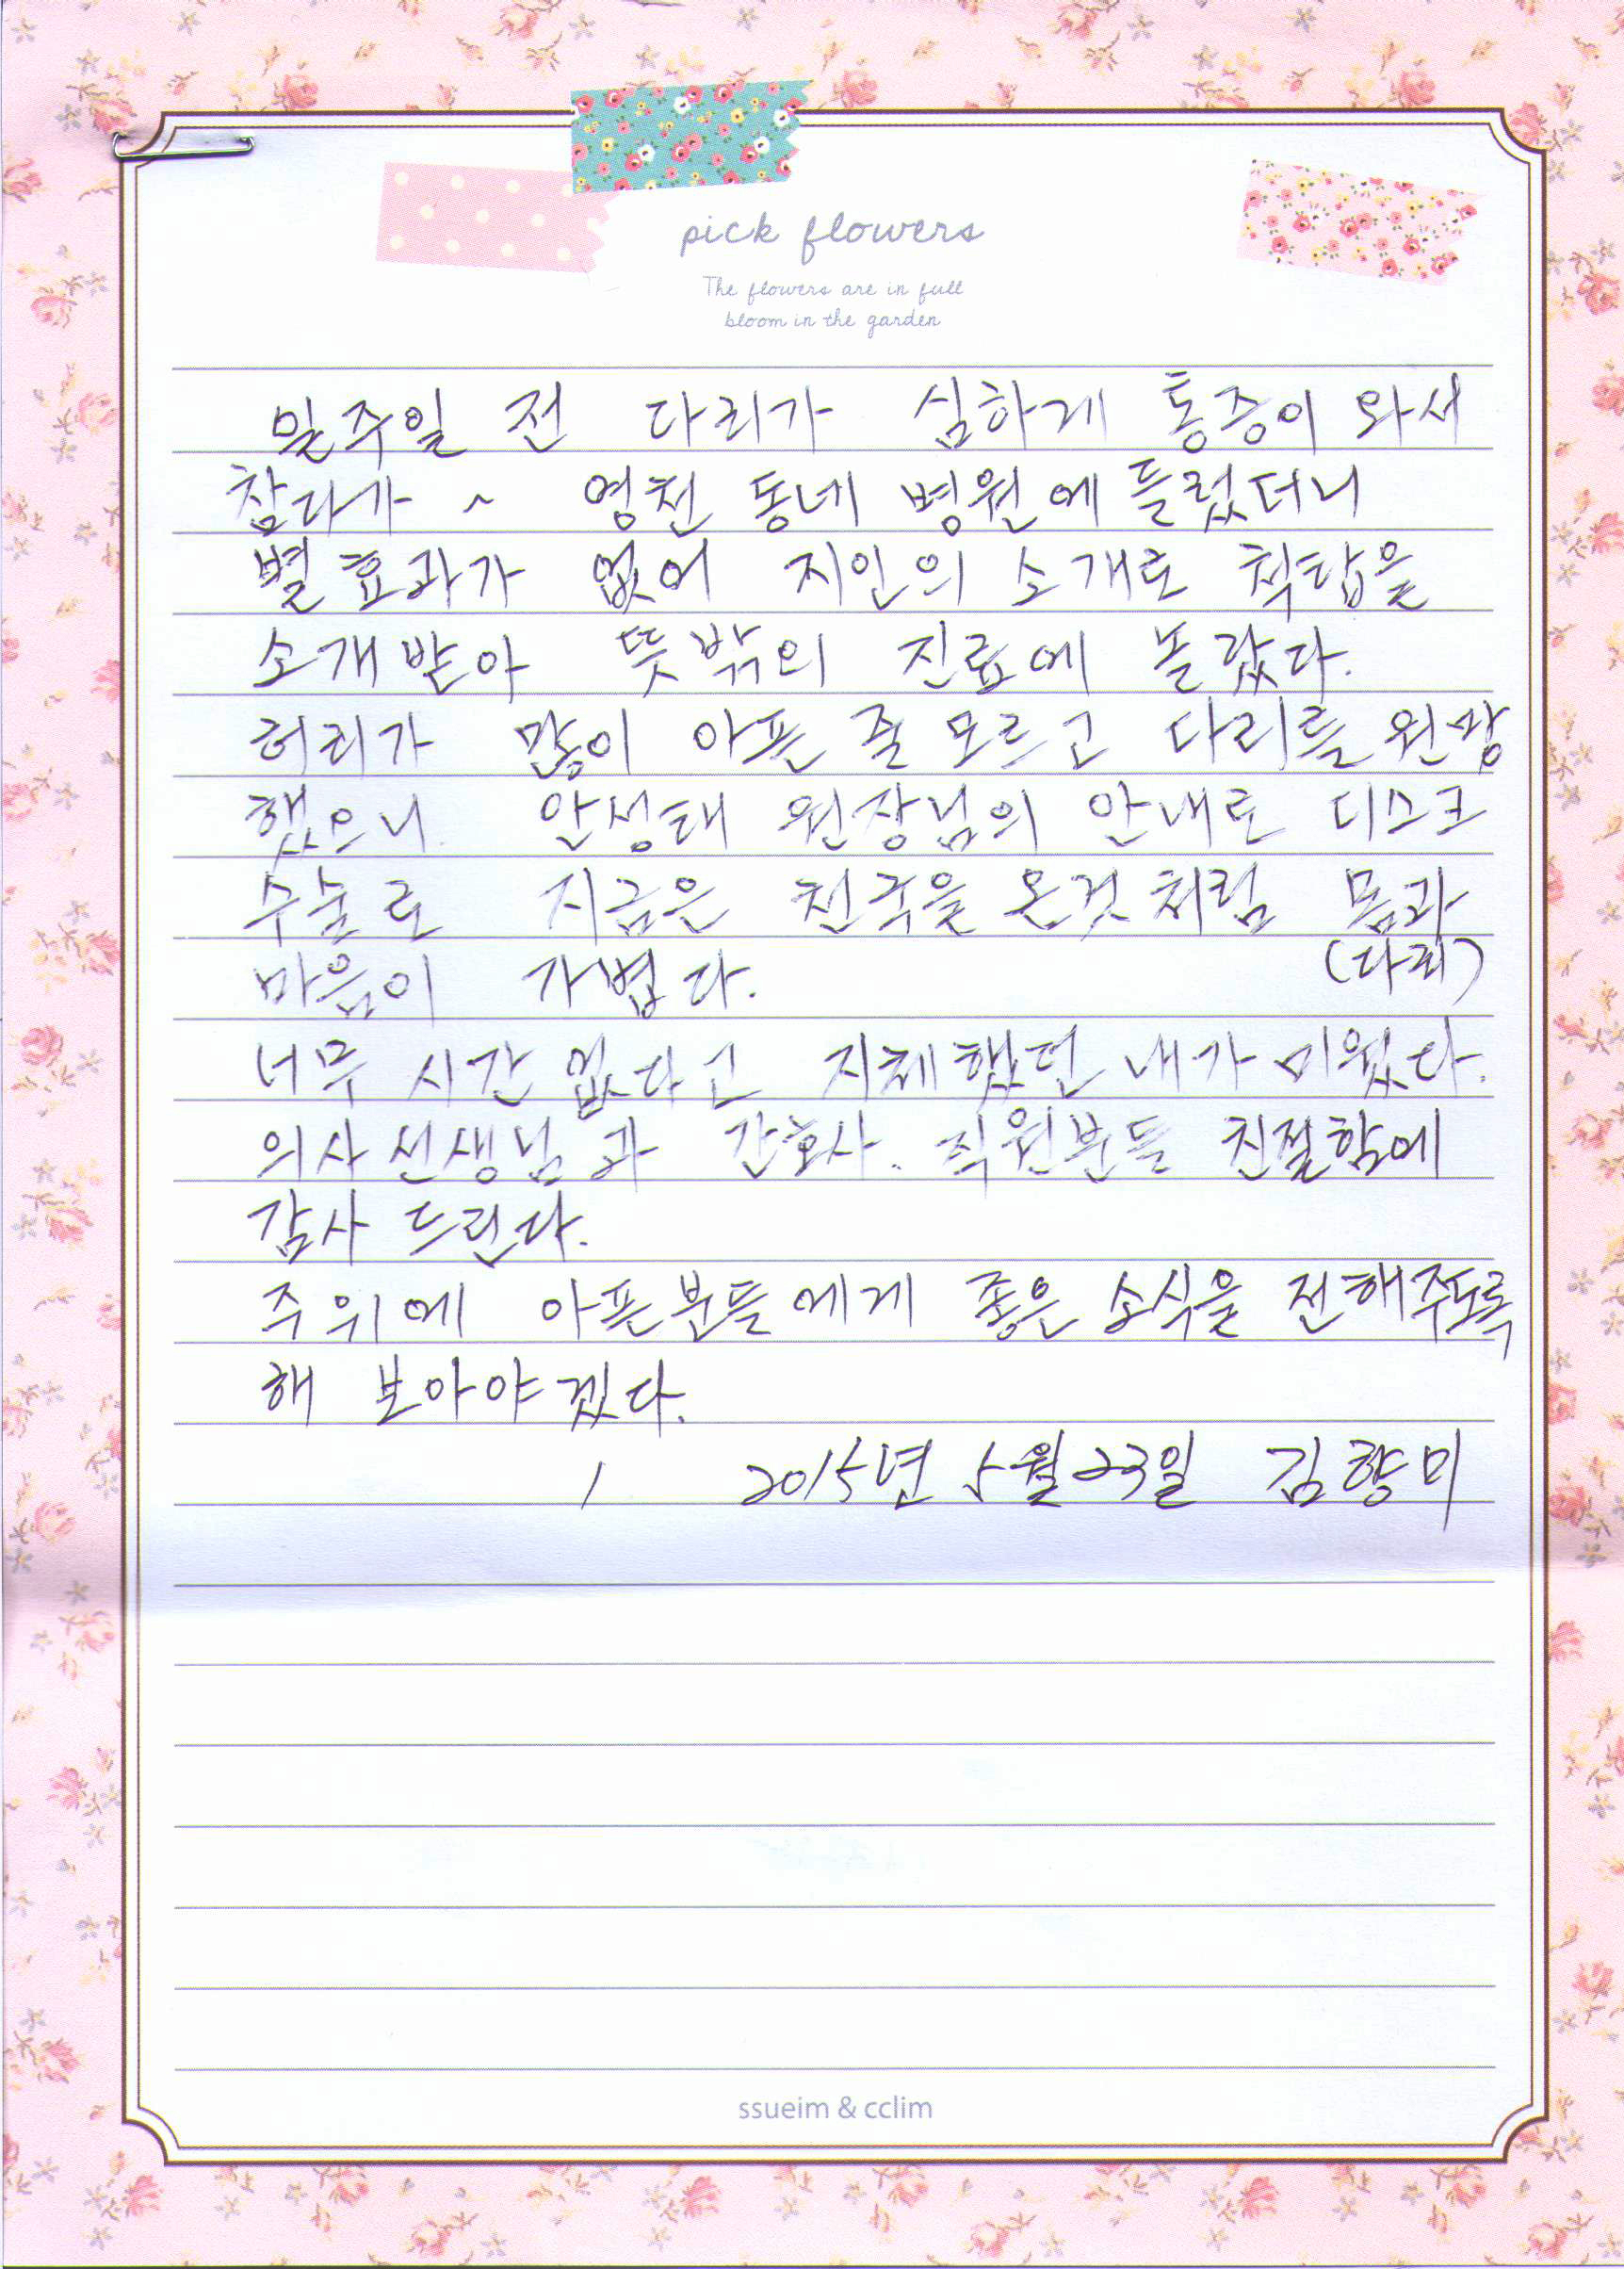 pick flowers
The flowers are in full
bloom in the garden
일주일 전 다리가 심하게 통증이 와서
참다가 ~ 영천 동네 병원에 들렀더니
별 효과가 없어 지인의 소개로 척탑을
소개받아 뜻밖의 진료에 놀랐다.
허리가 많이 아픈 줄 모르고 다리를 원망
했으니. 안성태 원장님의 안내로 디스크
수술로 지금은 천국을 온것처럼 몸과
(다리)
마음이 가볍다.
너무 시간 없다고 지체했던 내가 미웠다.
의사선생님과 간호사. 직원분들 친절함에
감사 드린다.
주위에 아픈분들에게 좋은 소식을 전해주도록
해 보아야겠다.
2015년 5월 23일 김향미
ssueim & cclim